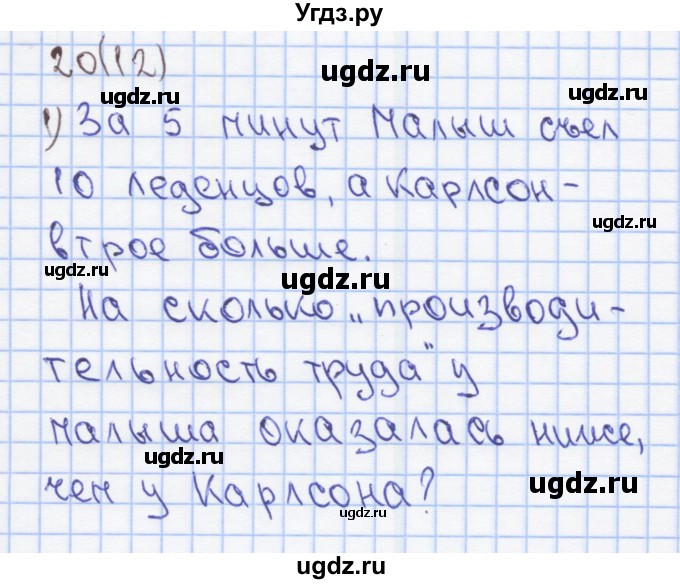 Угдз.ру
20(12)
ugdz.ru ugdz.ru ugdz.ru
1) За 5 минут Малыш съел
10 леденцов, а Карлсон-
ugdz.ru ugdz.ru
втрое больше.
ugdz.ru ugdz.ru
На сколько „производи-
тельность труда" у
ugdz.ru ugdz.ru
малыша оказалась ниже,
ugdz.ru
чем у Карлсона?
ugdz.ru ugdz.ru
ugdz.ru